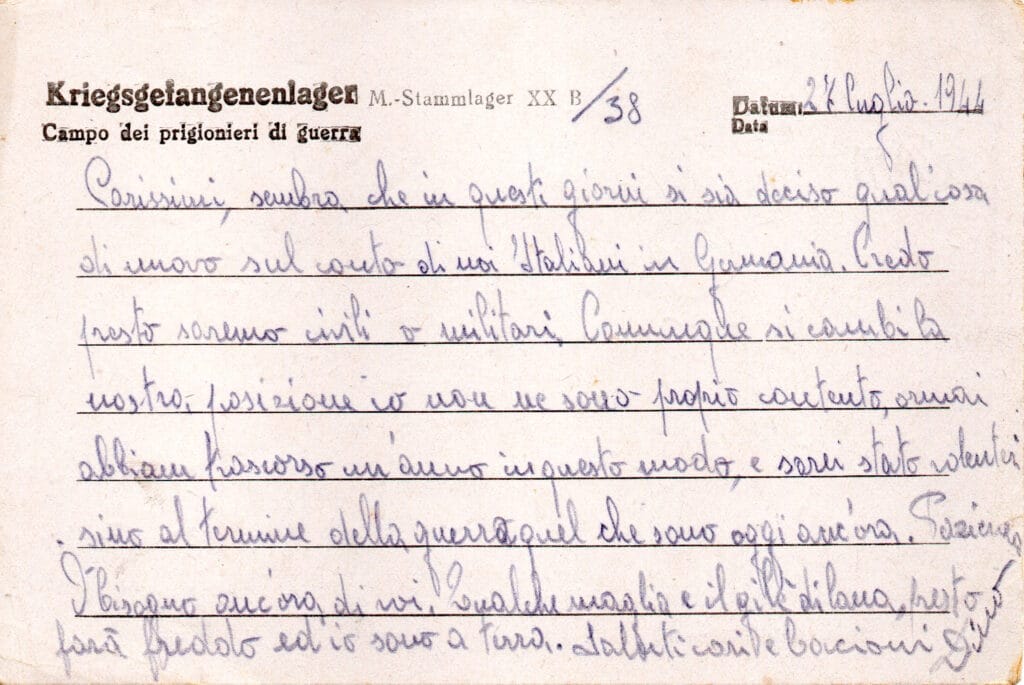 Kriegsgefangenenlager M.-Stammlager XX B /38
Campo dei prigionieri di guerra
Datum: 27 luglio. 1944
Data
Carissimi, sembra che in questi giorni si sia deciso qual'cosa
di nuovo sul conto di noi Italiani in Germania. Credo
presto saremo civili o militari. Comunque si cambi la
nostra posizione io non ne sono proprio contento, ormai
abbiam trascorso un'anno in questo modo, e sarei stato volentieri
sino al termine della guerra quel che sono oggi anc'ora. Pazienza
bisogno anc'ora di voi. Qualche maglia e il gilè di lana, presto
farà freddo ed io sono a terra. Saluti cari e bacioni Dino